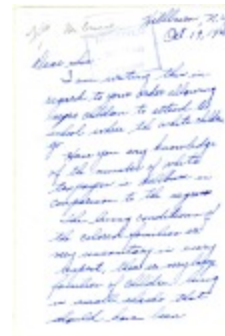 Hillburn, N.Y.
Oct 19, 19
Dear Sir
I am writing this in
regard to your order allowing
negro children to attend the
school where the white children
go
Have you any knowledge
of the number of white
taxpayers in Hillburn in
comparison to the negroes
The living conditions of
the colored families are
very unsanitary in every
respect, there are very large
families of children living
in small shacks that
should have been